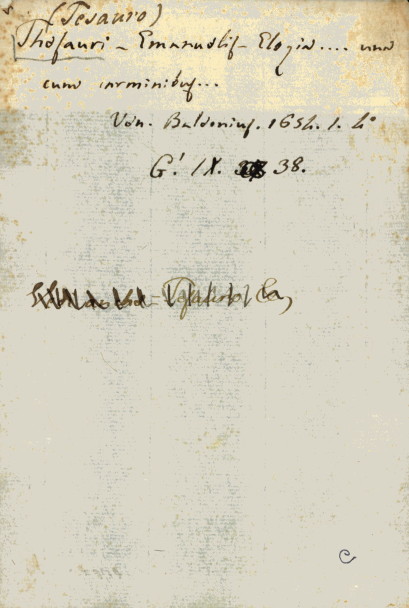 (Tesauro)
Thesauri - Emanuelis - Elogia.... una
cum carminibus...
Ven. Balleonius. 1654. 1. 4°
G! IX. 38.
C